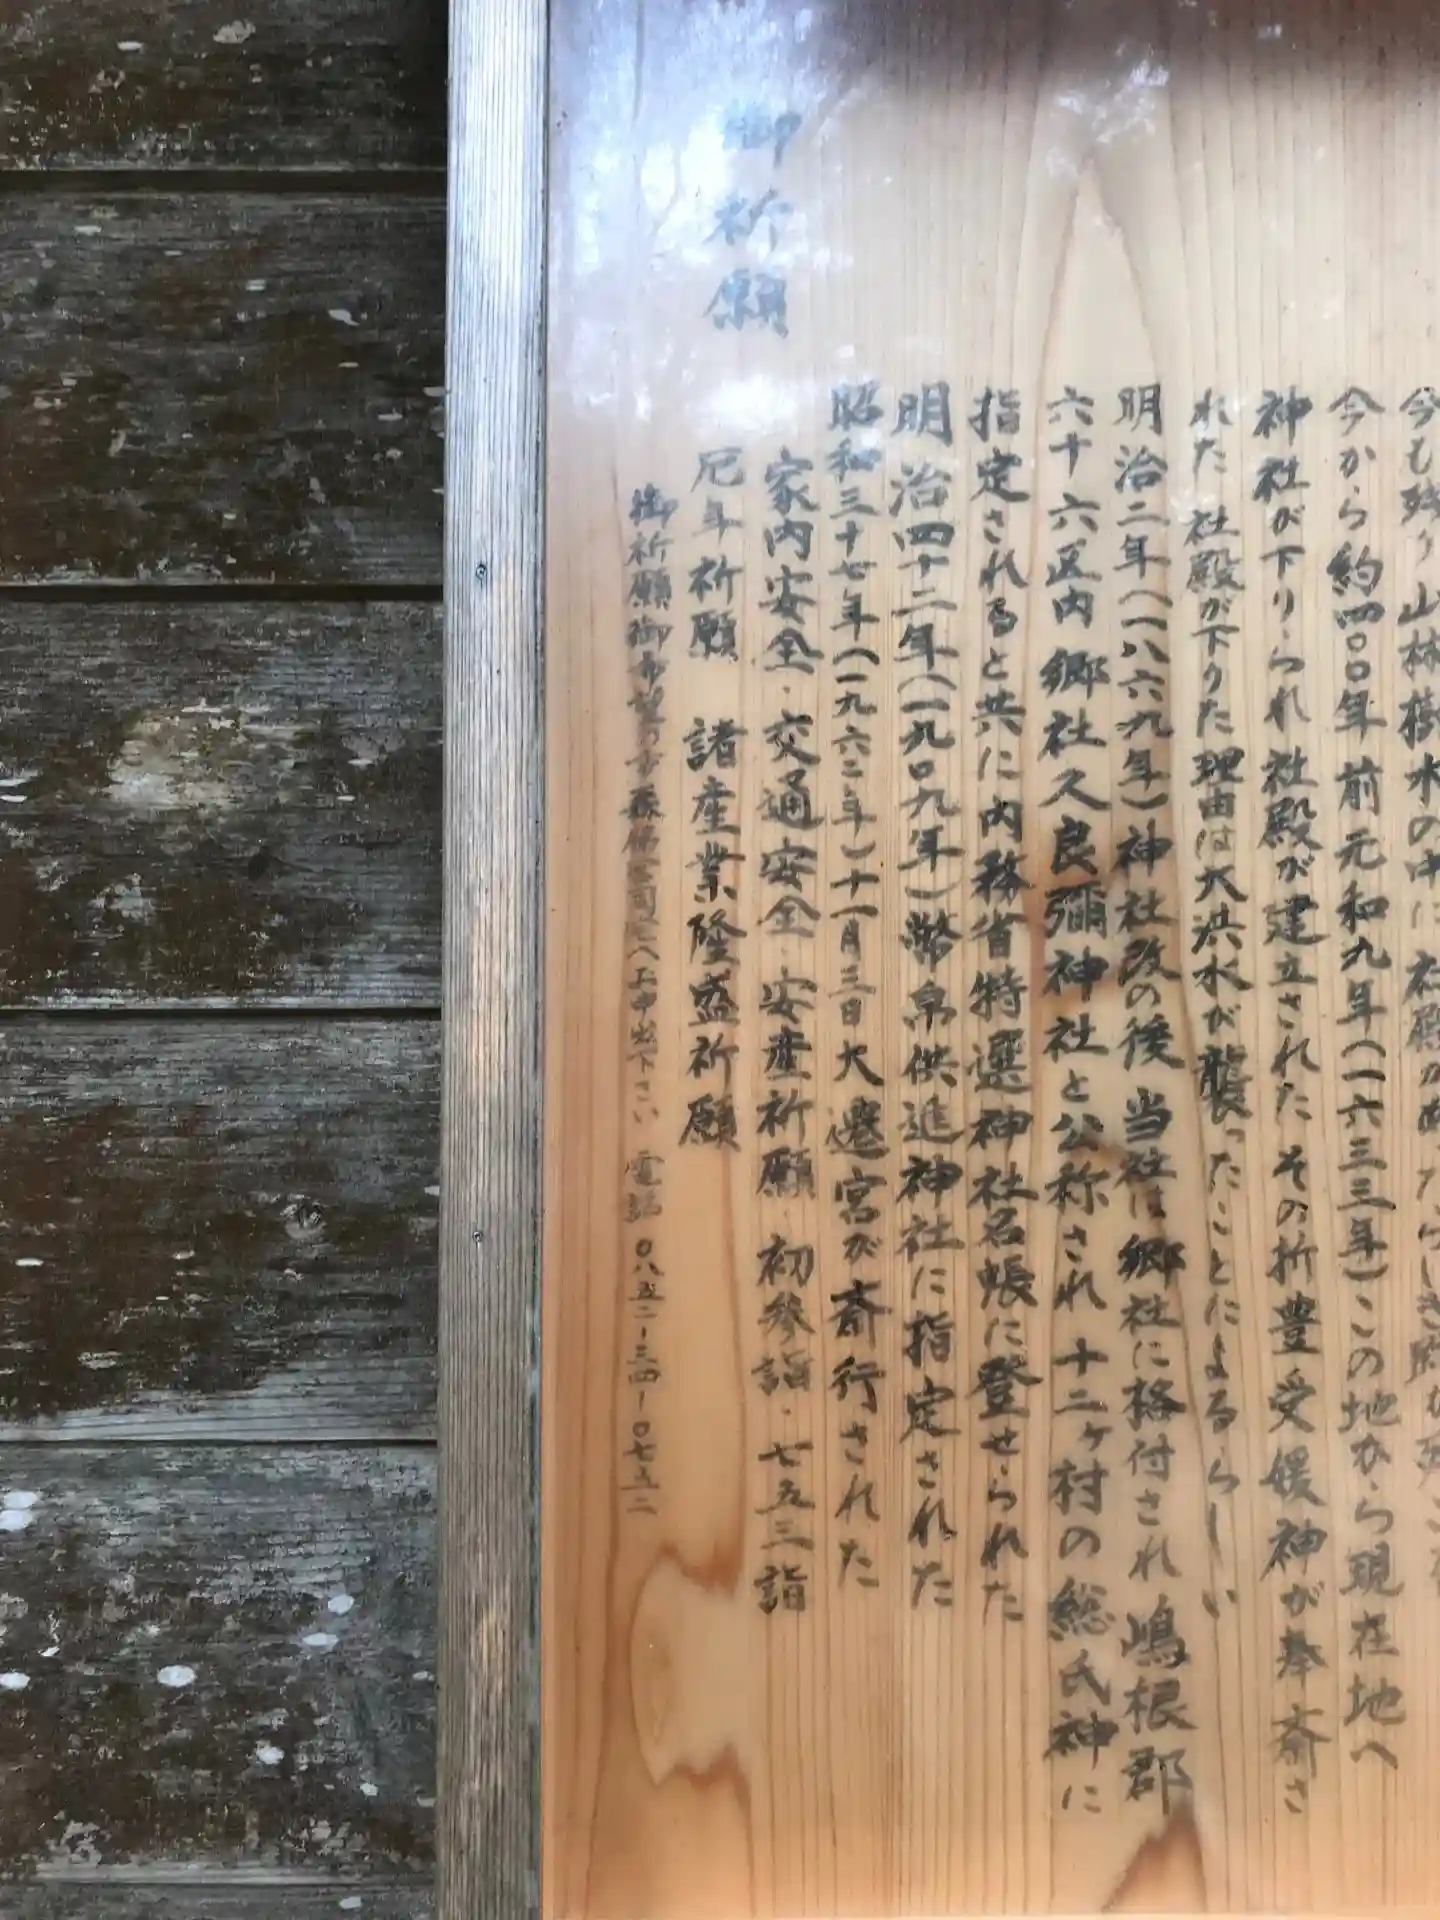 今も残り山林樹木の中に社殿があったらしき
今から約四〇〇年前元和九年(一六三三年)この地から現在地へ
神社が下りられ社殿が建立されたその折豊受媛神が奉斎さ
れた 社殿が下りた理由は大洪水が襲ったことによるらしい
明治二年(一八六九年)神社改の後当社は郷社に格付され嶋根郡
六十六区内郷社久良彌神社と公称され十二ヶ村の総氏神に
指定されると共に内務省特選神社名帳に登せられた
明治四十二年(一九〇九年)幣帛供進神社に指定された
昭和三十七年(一九六二年)十一月三日大遷宮が斎行された
御祈願
家内安全・交通安全・安産祈願・初参詣・七五三詣
厄年祈願 諸産業隆盛祈願
御祈願御希望の方森脇宮司宅へ上申出下さい 電話 〇八五二ー三四ー〇七五二